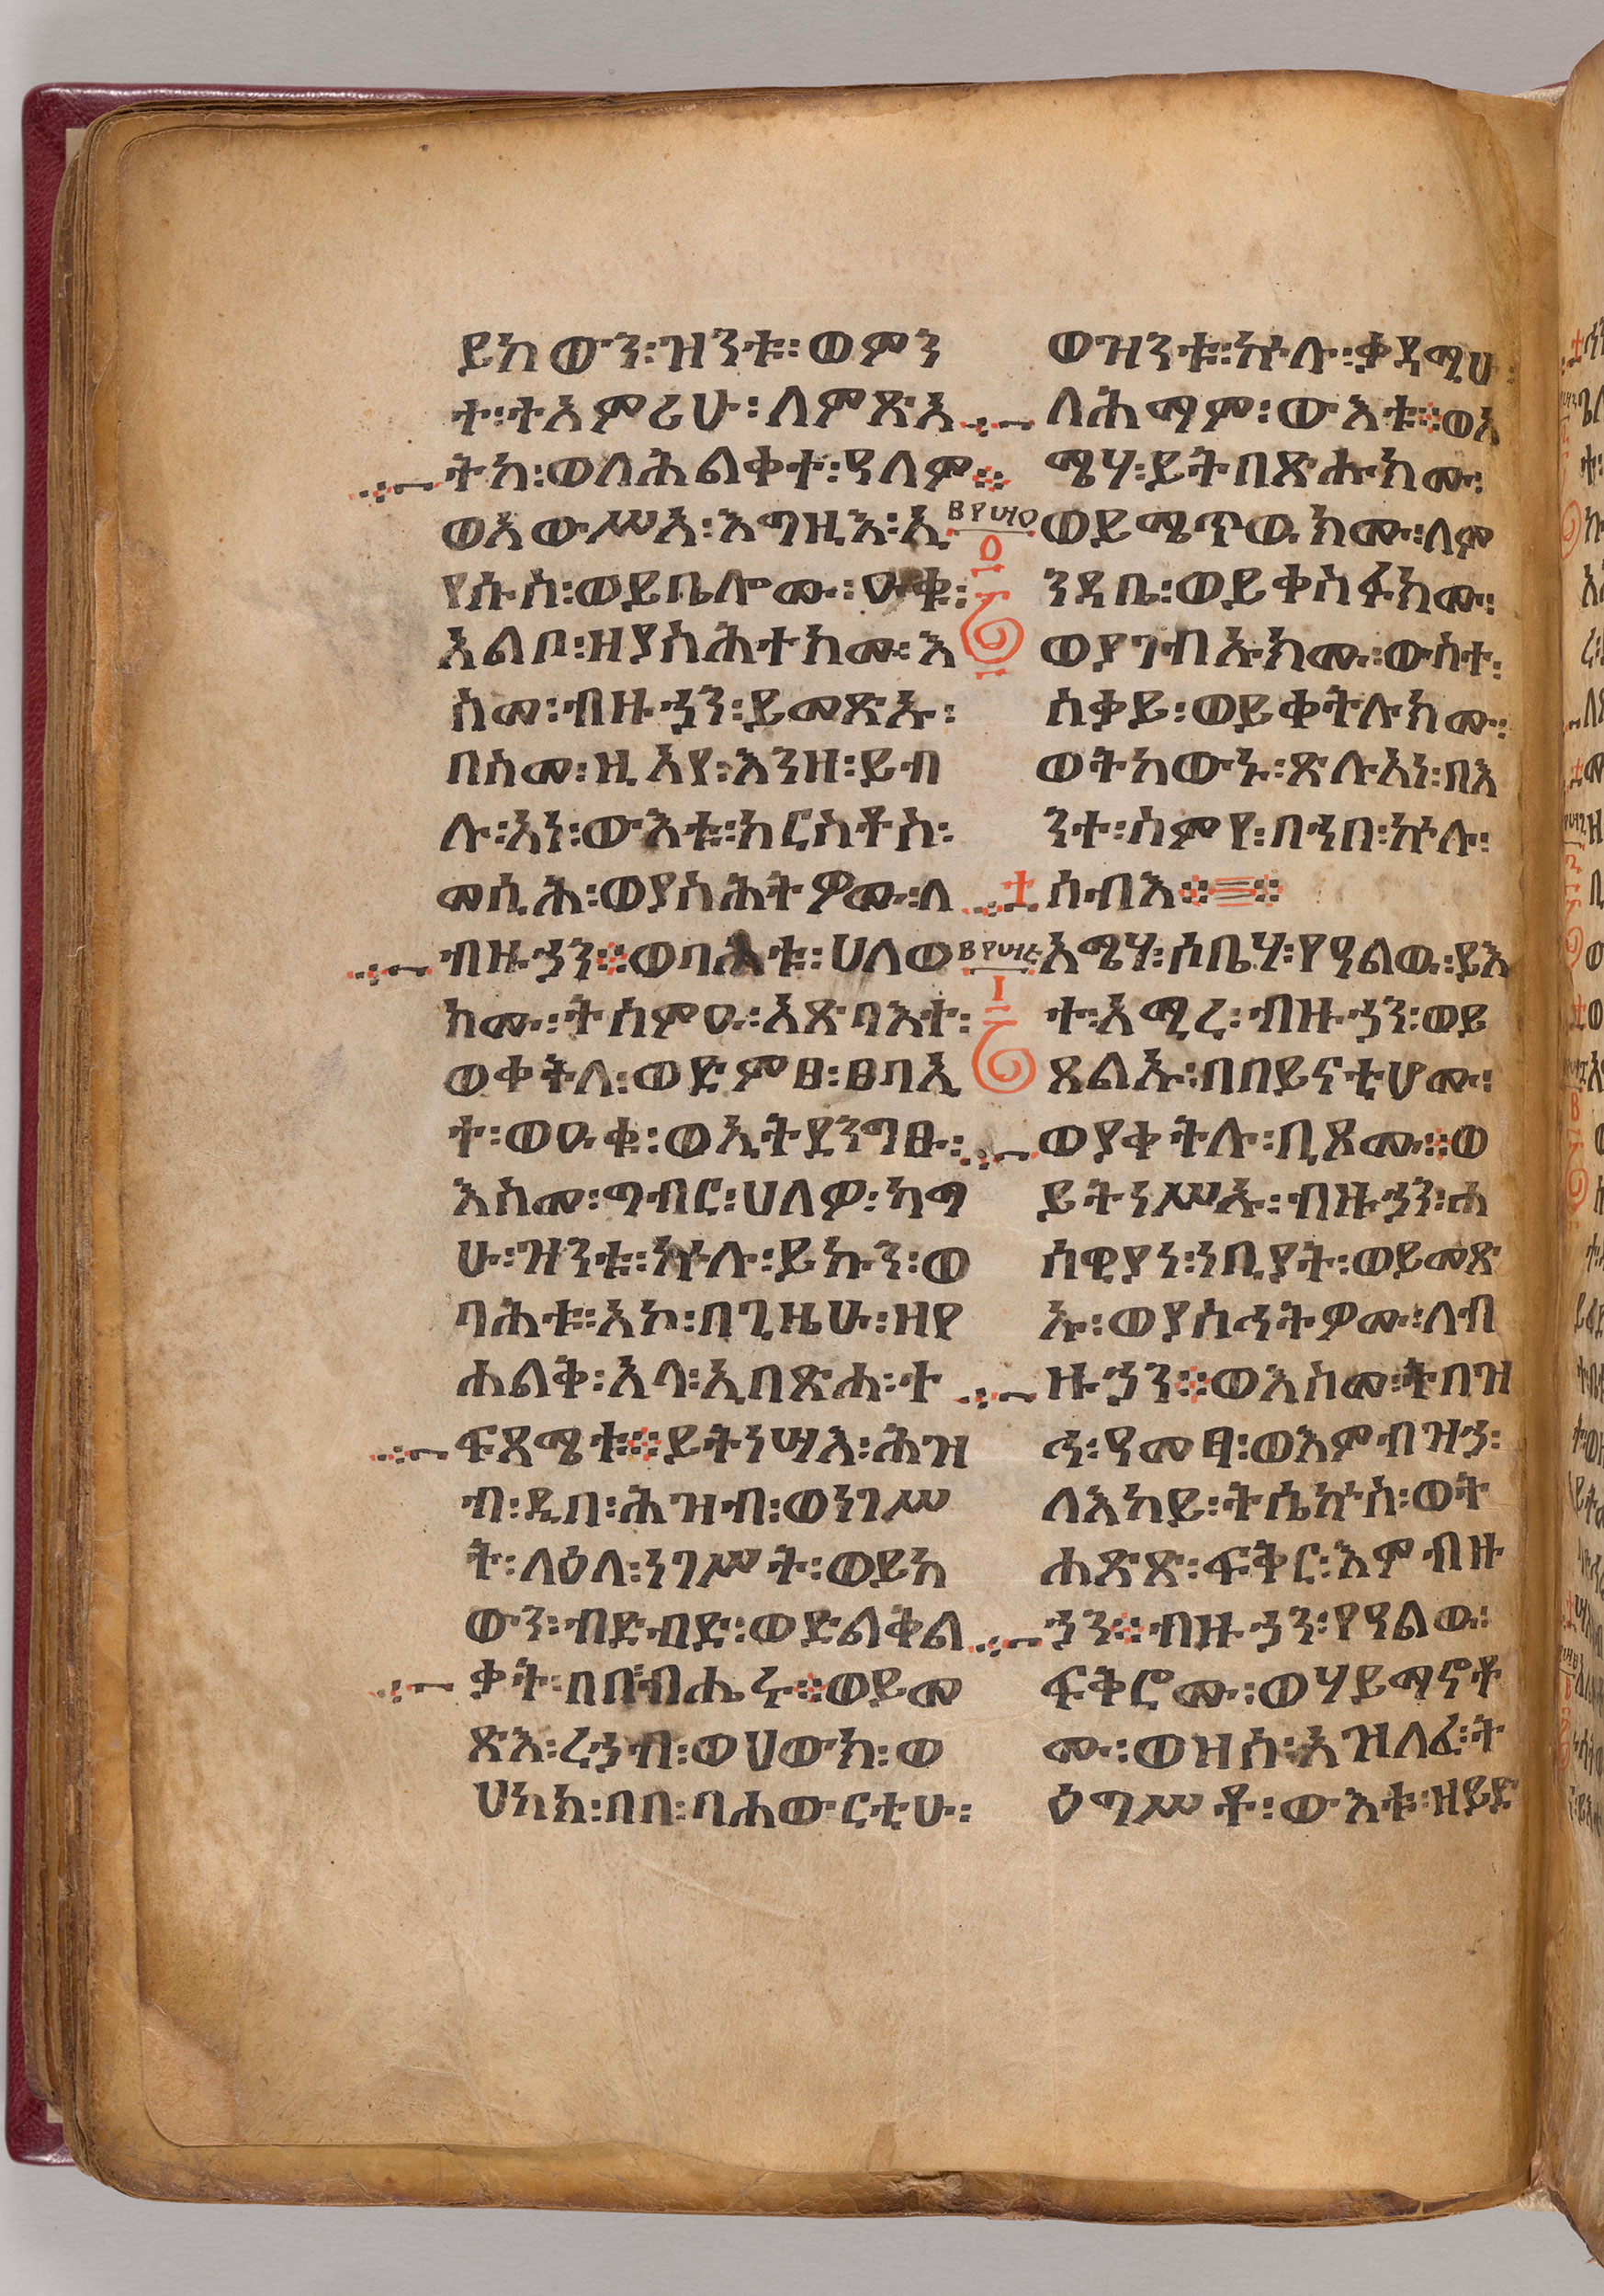 ይከውን፡ዝንቱ፡ወምን
ት፡ትእምሪሁ፡ለምጽአ
ትከ፡ወለሕልቀተ፡ዓለም፨
ወአውሥአ፡እግዚእ፡ኢ
የሱስ፡ወይቤሎሙ፡ዑቁ፡
አልቦ፡ዘያስሕተክሙ፡እ
ስመ፡ብዙኃን፡ይመጽኡ፡
በስመ፡ዚአየ፡እንዘ፡ይብ
ሉ፡አነ፡ውእቱ፡ክርስቶስ፡
መሲሕ፡ወያስሕትዎሙ፡ለ
ብዙኃን፨ወባሕቱ፡ሀለወ
ክሙ፡ትስምዑ፡አጽባእተ፡
ወቀትለ፡ወድምፀ፡ፀባኢ
ት፡ወዑቁ፡ወኢትደንግፁ፡
እስመ፡ግብር፡ሀለዎ፡ካማ
ሁ፡ዝንቱ፡ኵሉ፡ይኩን፡ወ
ባሕቱ፡አኮ፡በጊዜሁ፡ዘየ
ሐልቅ፡አላ፡ኢበጽሐ፡ተ
ፍጻሜቱ፨ይትነሣእ፡ሕዝ
ብ፡ዲበ፡ሕዝብ፡ወነገሥ
ት፡ለዕለ፡ነገሥት፡ወይከ
ውን፡ብድብድ፡ወድልቅል
ቃት፡በበብሔሩ፨ወይመ
ጽእ፡ረኃብ፡ወሀውክ፡ወ
ሀከክ፡በበ፡ባሐውርቲሁ፡
ወዝንቱ፡ኵሉ፡ቀዳሚሁ፡
ለሕማም፡ውእቱ፨ወአ
ሜሃ፡ይትበጽሑክሙ፡
ወይሜጥዉክሙ፡ለም
ንዳቤ፡ወይቀስፉክሙ፡
ወያገብኡክሙ፡ውስተ፡
ስቃይ፡ወይቀትሉክሙ፡
ወትከውኑ፡ጽሉአነ፡በእ
ንተ፡ስምየ፡በኀበ፡ኵሉ፡
ሰብእ፨፨
አሜሃ፡ሶቤሃ፡የዓልዉ፡ይእ
ተ፡አሚረ፡ብዙኃን፡ወይ
ጻልኡ፡በበይናቲሆሙ፡
ወያቀትሉ፡ቢጾሙ፨ወ
ይትነሥኡ፡ብዙኃን፡ሐ
ሰዊያነ፡ነቢያት፡ወይመጽ
ኡ፡ወያስሕትዎሙ፡ለብ
ዙኃን፨ወእስመ፡ትበዝ
ኅ፡ዓመፃ፡ወእምብዝኅ፡
ለእከይ፡ትሴኵስ፡ወት
ሐጽጽ፡ፍቅር፡እምብዙ
ኀን፨ብዙኃን፡የዓልዉ፡
ፍቅሮሙ፡ወሃይማኖቶ
ሙ፡ወዝሰ፡አዝለፈ፡ት
ዕግሥቶ፡ውእቱ፡ዘይድ